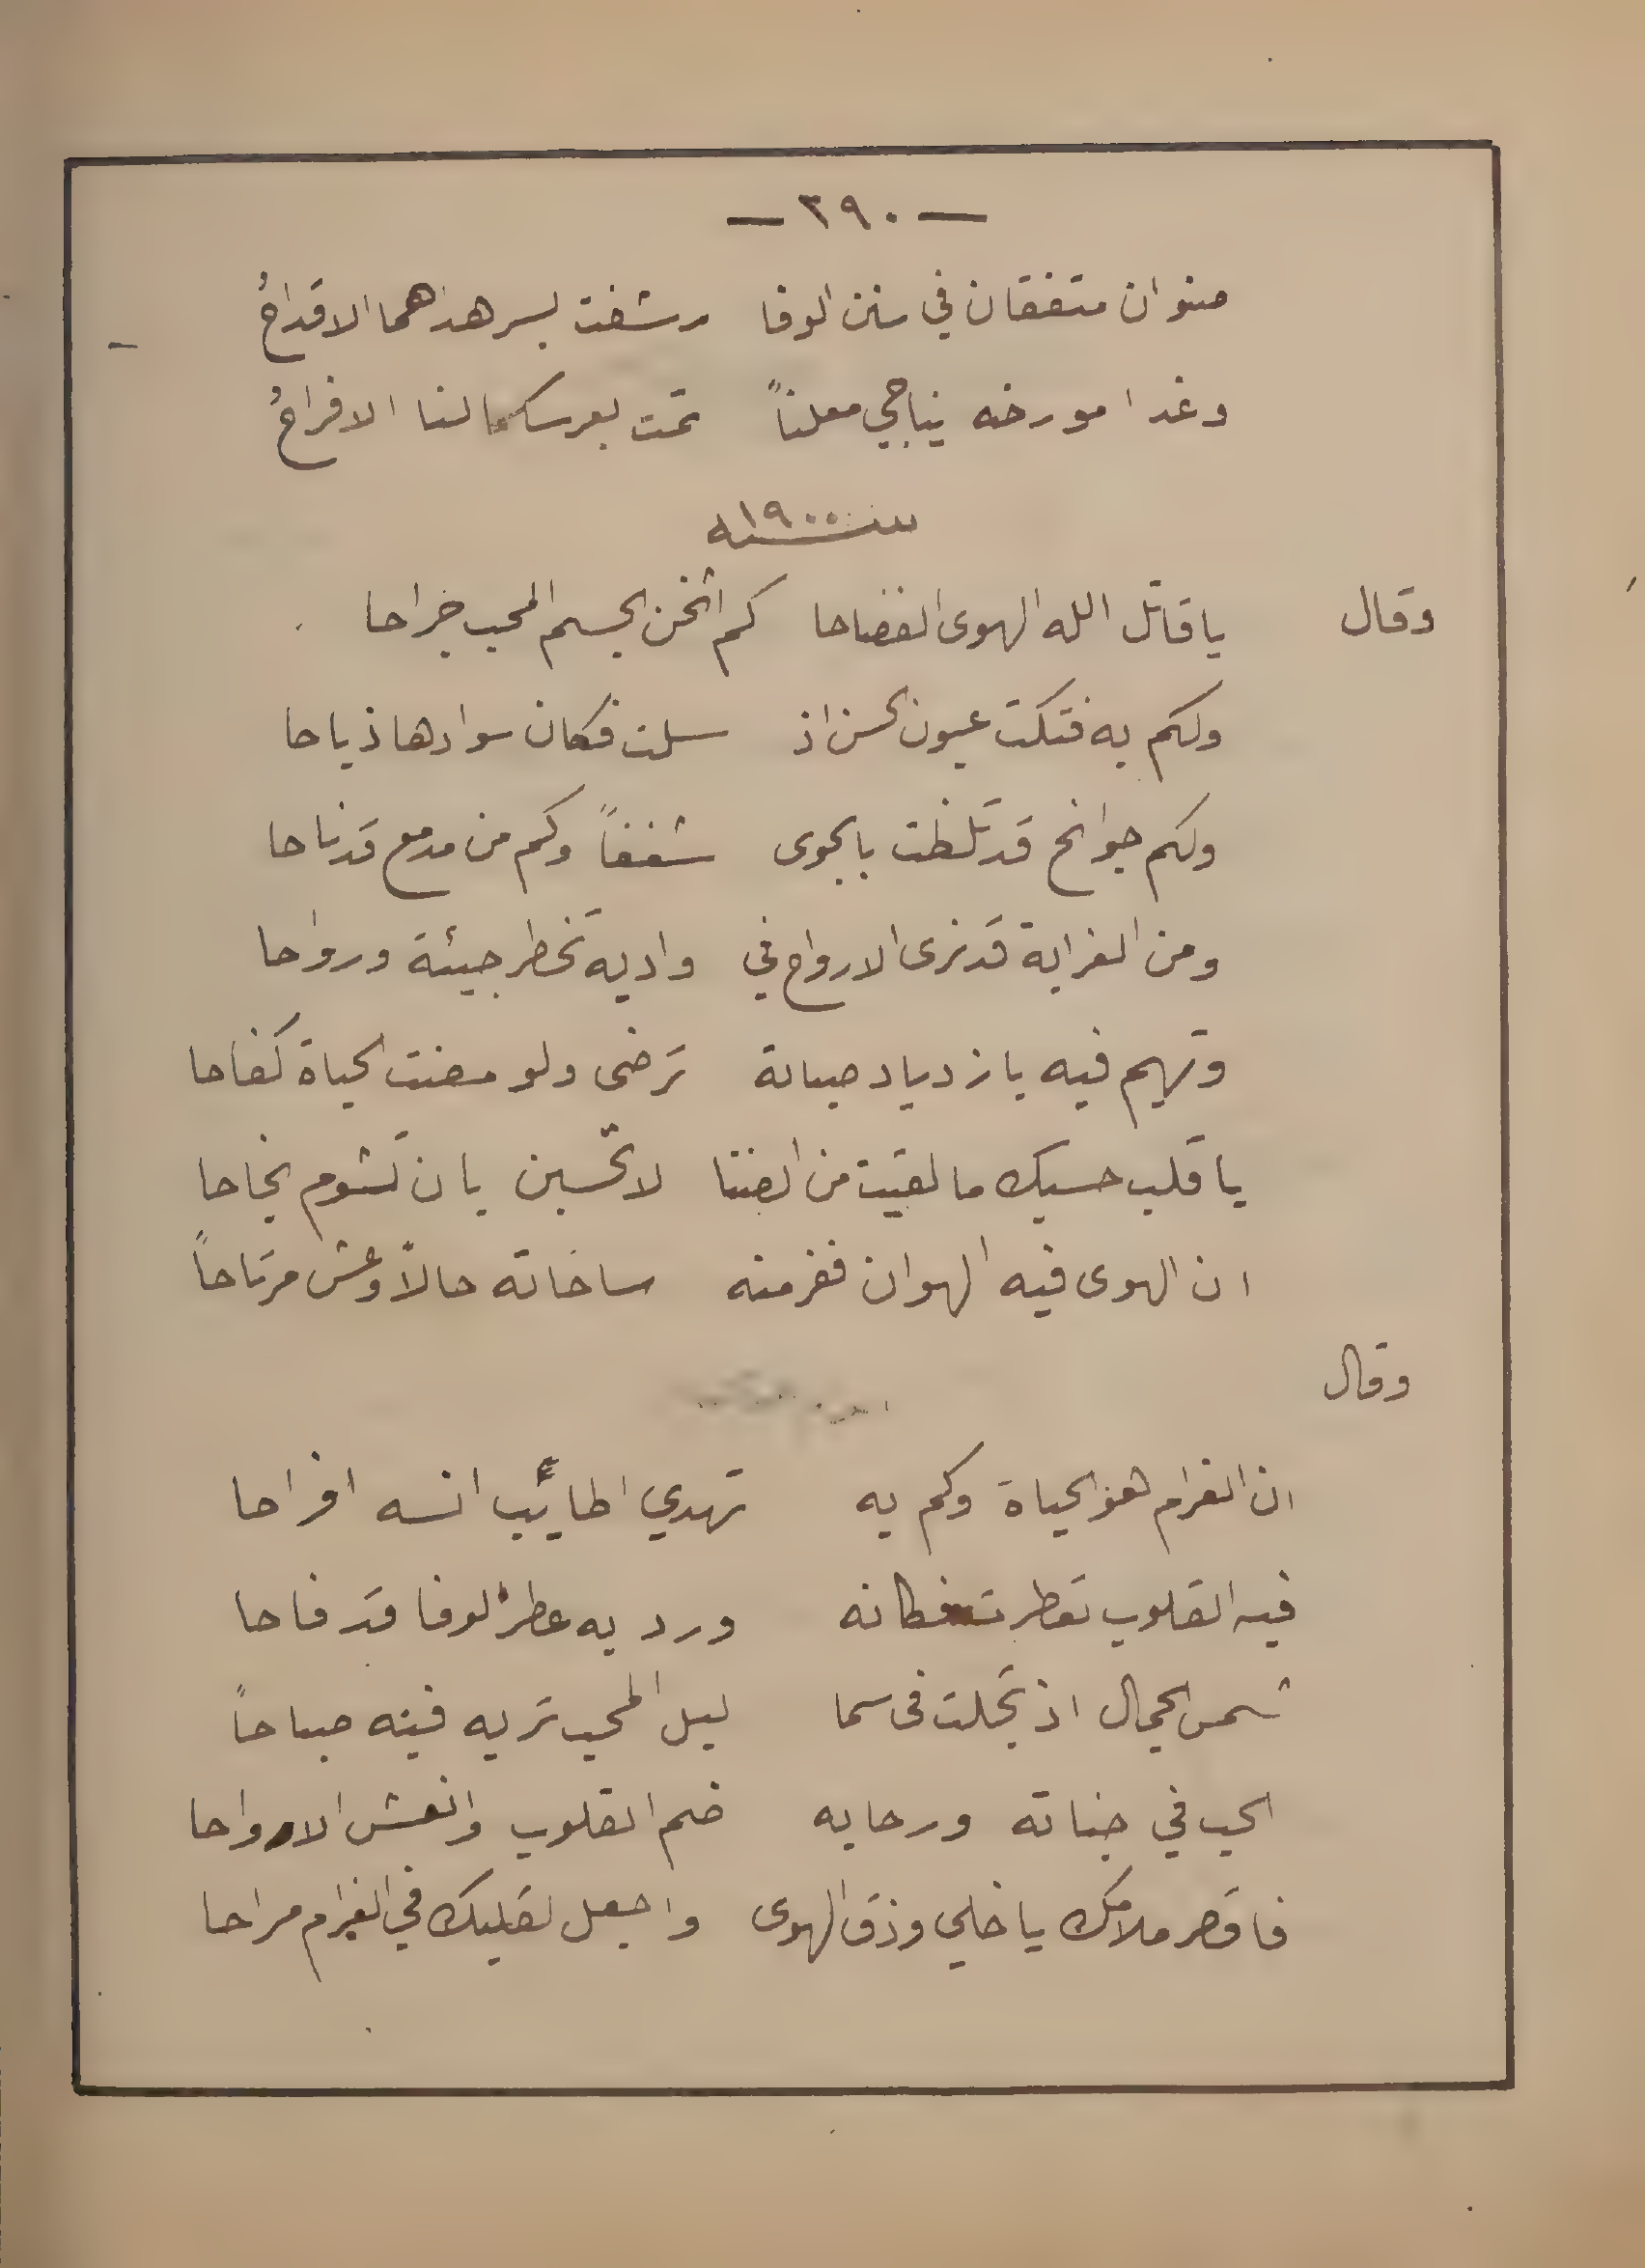 — ٢٩٠ —
صنوان متفقان في سنن الوفا رشفت بسر هداهما الاقداحُ
وغدا مورخه يناجي معلناً تمت بعرسكما لنا الافراحُ
سنة ١٩٠٠
وقال يا قاتل الله الهوى الفضاحا كم اثخن الجسم المحب جراحا
ولكم به فتكت عيون الحسن اذ سلت فكان سوادها ذباحا
ولكم جوانح قد تلظت بالجوى شغفاً وكم من مدمع قد ناحا
ومن الغرابة قد نرى الارواح في واديه تخطر جيئة ورواحا
وتهيم فيه بازدياد صبابة ترضى ولو مضت الحياة كفاحا
يا قلب حسبك ما لقيت من الضنا لا تحسبن بان تشوم نجاحا
ان الهوى فيه الهوان ففر من ساحاته حالاً وعش مرتاحاً
وقال
ان الغرام هو الحياة وكم به تهدي اطائب انسه افراحا
فيه القلوب تعطرت ورد به عطر الوفا قد فاحا
شمس الجمال اذ تجلت في سما ليل المحب تريه فيه صباحاً
الحب في جناته ورحابه ضم القلوب وانعش الارواحا
فاقصر ملامك يا خلي وذق الهوى واجعل لقلبك في الغرام مراحا